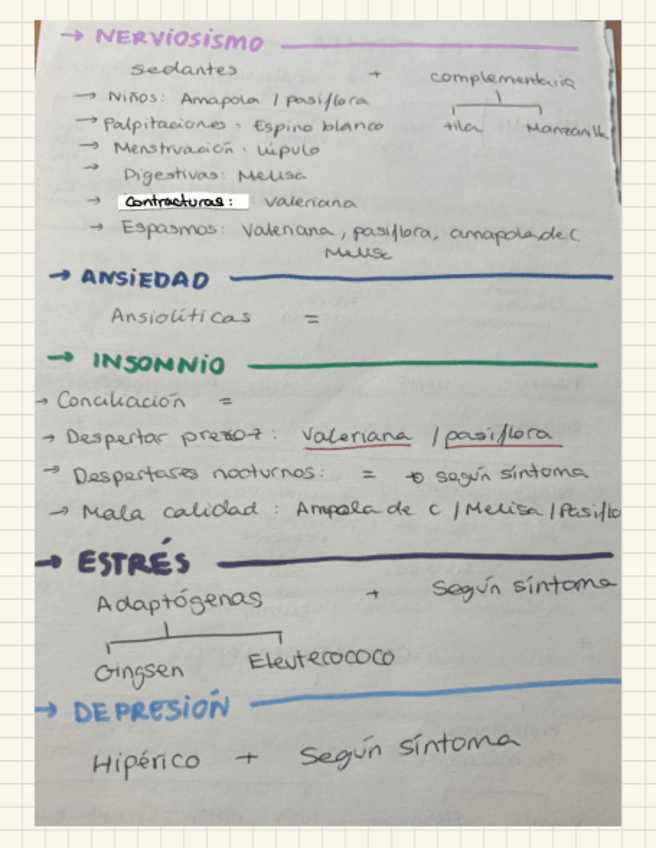 → NERVIOSISMO
sedantes + complementaria
→ Niños: Amapola / pasiflora
tila Manzanilla
→ Palpitaciones: Espino blanco
→ Menstruación: Lúpulo
→ Digestivas: Melisa
→ Contracturas: Valeriana
→ Espasmos: Valeriana, pasiflora, amapola de C.
Melisa
→ ANSIEDAD
Ansiolíticas =
→ INSOMNIO
→ Conciliación =
→ Despertar : Valeriana / pasiflora
→ Despertares nocturnos: = según síntoma
→ Mala calidad: Ampola de C / Melisa / Pasiflo
→ ESTRÉS
Adaptógenas + Según síntoma
Gingsen Eleuterococo
→ DEPRESIÓN
Hipérico + Según síntoma